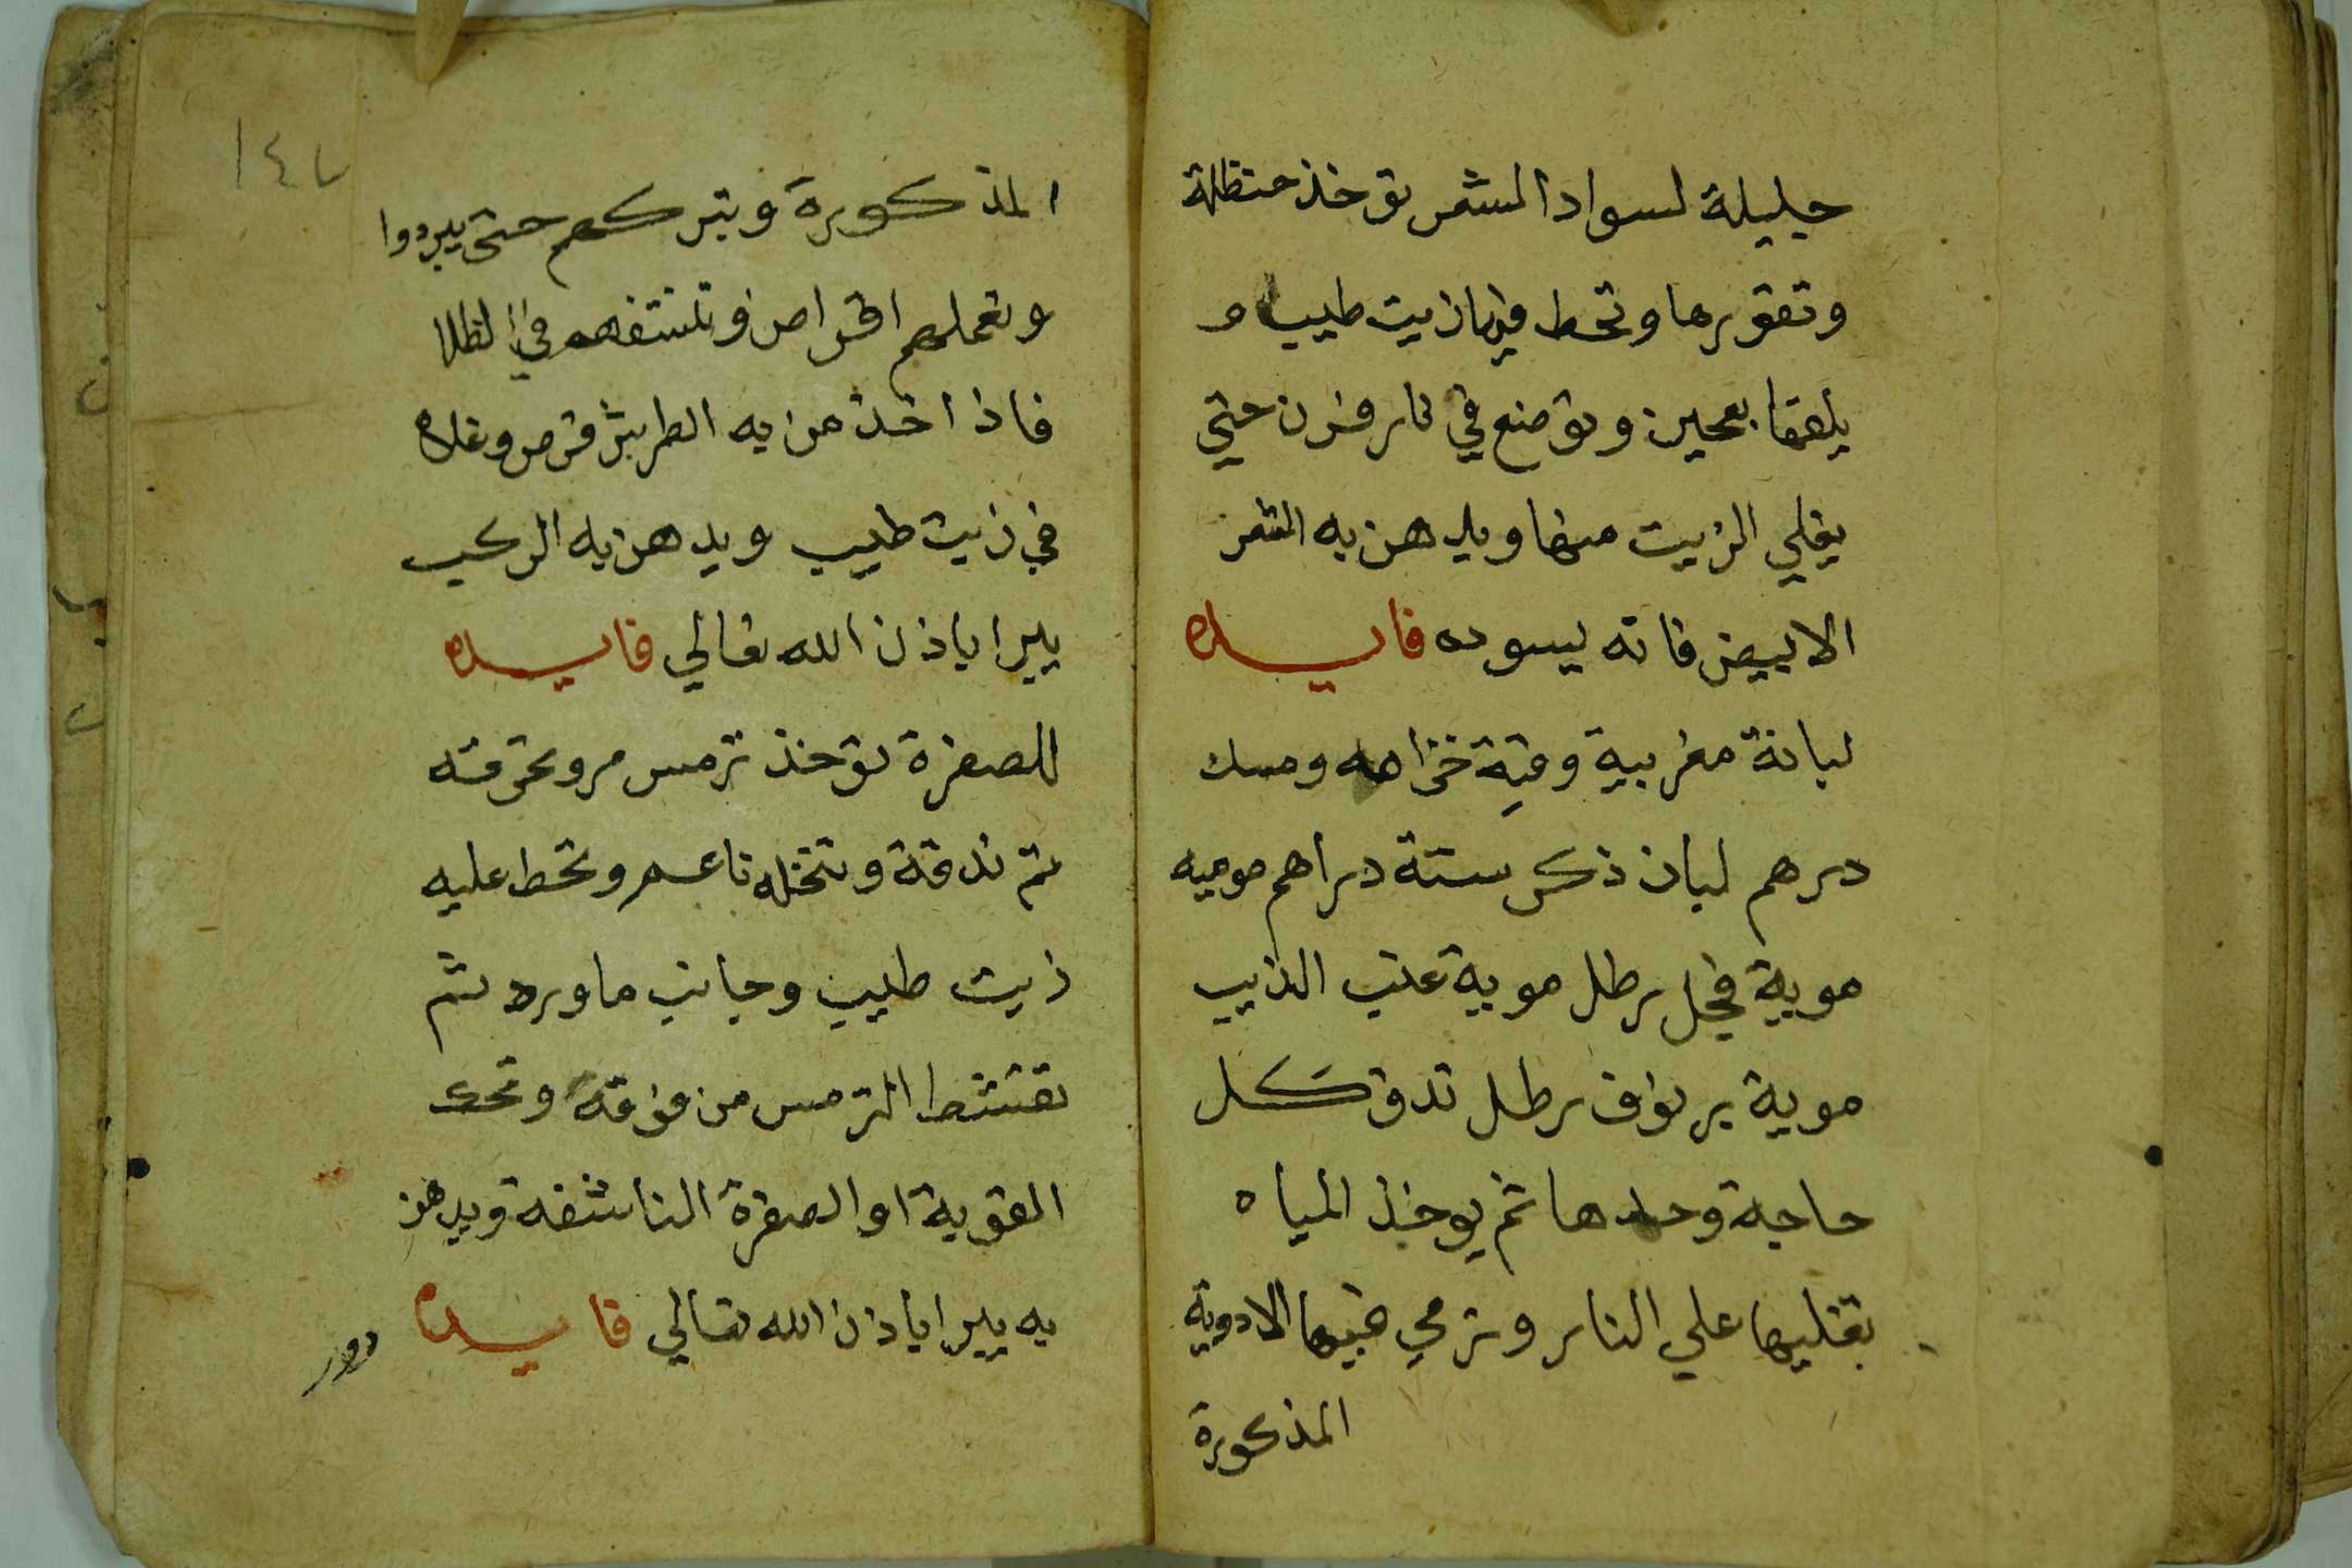 جليلة لسواد الشعر توخذ حنظلة
وتقورها وتحط فيها زيت طيب و
يلعقا بعجين وتوضع في نار فرن حتي
يغلي الزيت منها ويدهن به الشعر
الابيض فانه يسوده فايده
لبانة مغربية وقية خزامه ومسك
درهم لبان ذكر ستة دراهم موميه
موية فجل رطل موية عنب الذيب
موية برنوف رطل تدق كل
حاجة وحدها ثم يوخذ المياه
تغليها علي النار وترمي فيها الادوية
المذكورة
١٤٧
المذكورة وتتركهم حتي يبردوا
وتعملهم اقراص وتنشفهم في الظلا
فاذا اخذ من به الطربش قرص وغلاه
في زيت طيب ويدهن به الركب
يبرا باذن الله تعالي فايده
للصفرة توخذ ترمس مر وتحرقه
ثم تدقة وتنخله ناعم وتحط عليه
زيت طيب وجانب ماورد ثم
تقشط الترمس من فوقة وتحك
القوبة او الصفرة الناشفه ويدهن
به يبرا باذن الله تعالي فايده
دور